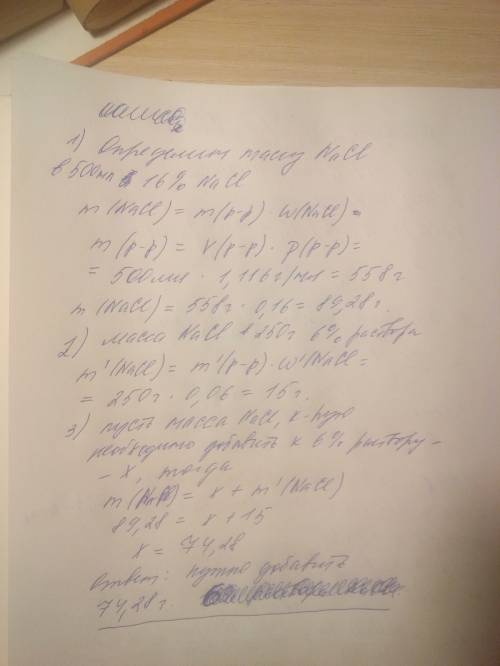 1) Определим массу NaCl
в 500мл 16% NaCl
m(NaCl) = m(р-р) · ω(NaCl) =
m(р-р) = V(р-р) · ρ(р-р) =
= 500мл · 1,116г/мл = 558г
m(NaCl) = 558г · 0,16 = 89,28г.
2) масса NaCl в 250г 6% раствора
m'(NaCl) = m'(р-р) · ω'(NaCl =
= 250г · 0,06 = 15г.
3) пусть масса NaCl, к-рую
необходимо добавить к 6% раствору -
- x, тогда
m = x + m'(NaCl)
89,28 = x + 15
x = 74,28
Ответ: нужно добавить
74,28г.